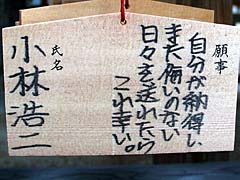 願事
自分が納得し、
また偽いのない
日々を送れたら
これ幸い。
氏名
小林浩二